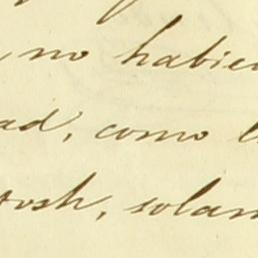 no habie
ad, como l
tosh, solam